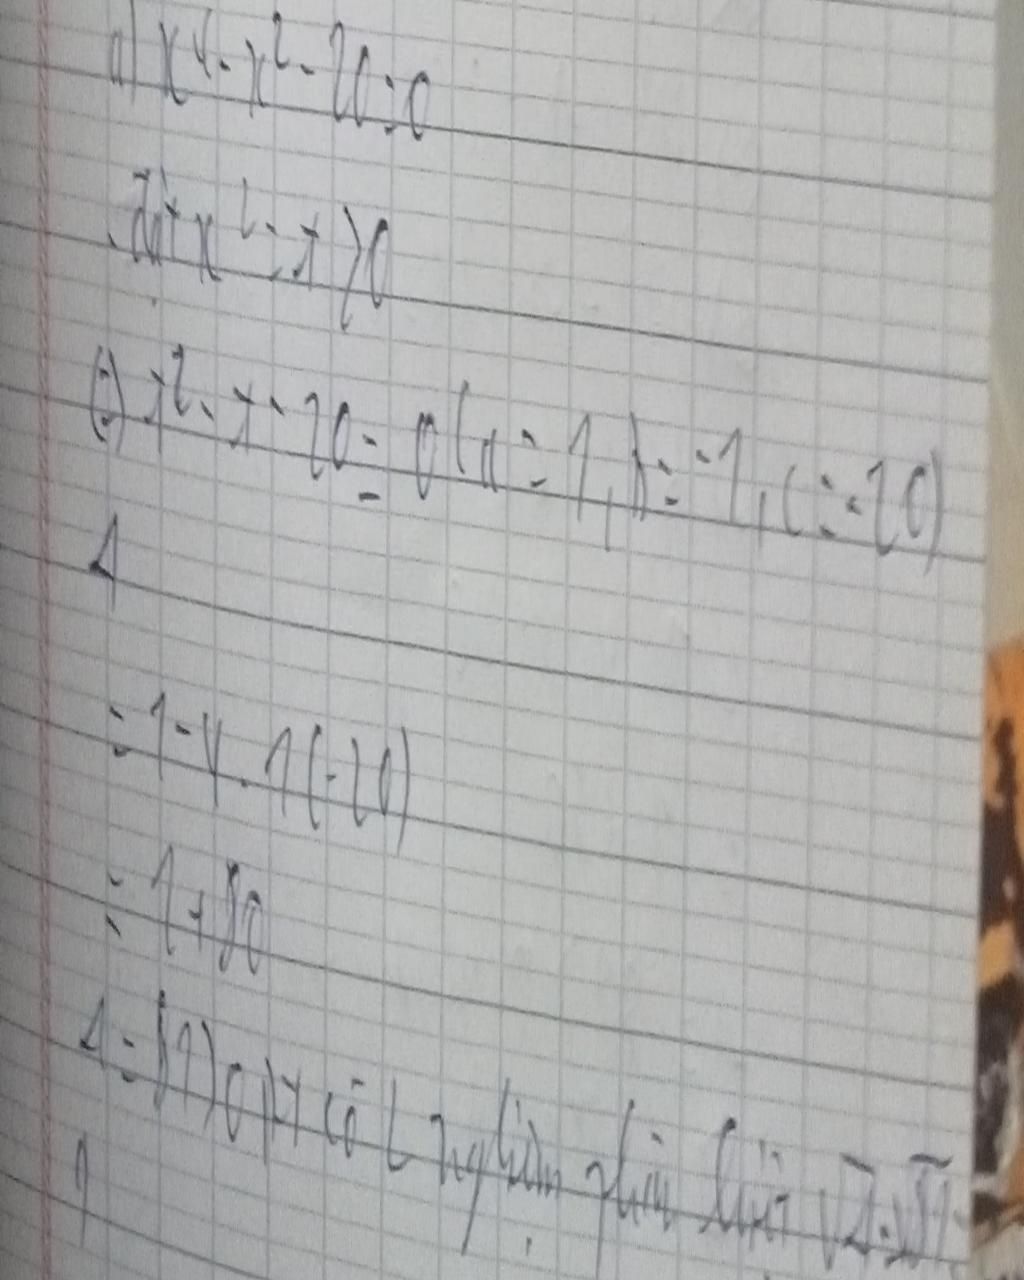 a) x⁴ - x² - 20 = 0
Đặt x² = t > 0
(=) t² - t - 20 = 0 (a = 1, b = -1, c = -20)
Δ
= 1 - 4 . 1 (-20)
= 1 + 80
Δ = 81 > 0 pt có 2 nghiệm phân biệt √Δ = √81 =
9